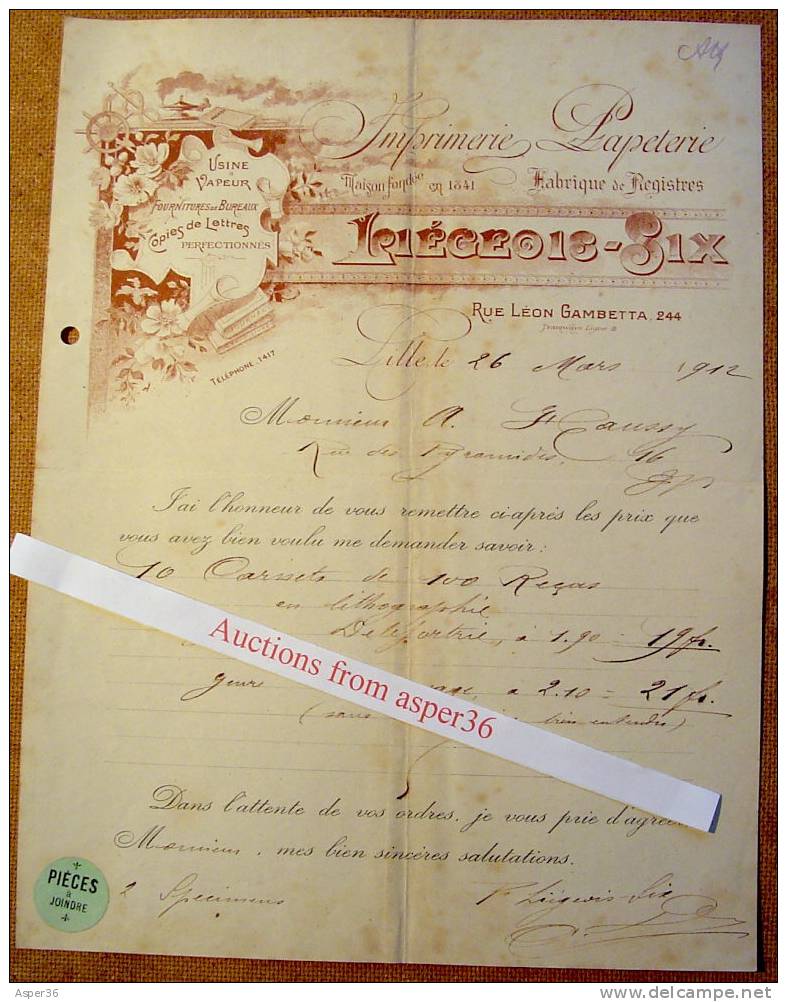 Imprimerie Papeterie
Maison fondée en 1841 Fabrique de Registres
LIÉGEOIS-SIX
USINE
à
VAPEUR
FOURNITURES DE BUREAUX
Copies de Lettres
PERFECTIONNÉS
TÉLÉPHONE. 1417
RUE LÉON GAMBETTA. 244
Lille, le 26 Mars 1912
Monsieur A.
Rue des Pyramides, 16
J'ai l'honneur de vous remettre ci-après les prix que
vous avez bien voulu me demander savoir:
10 Carnets de 100 Reçus
en lithographie
Delesortrie, à 1.90 = 19 fr.
genre à 2.10 = 21 fr.
(sans bien entendu)
Auctions from asper36
Dans l'attente de vos ordres, je vous prie d'agréer
Monsieur, mes bien sincères salutations.
2 Specimens
Liégeois-Six
PIÈCES
à
JOINDRE
Asper36
delcampe.net